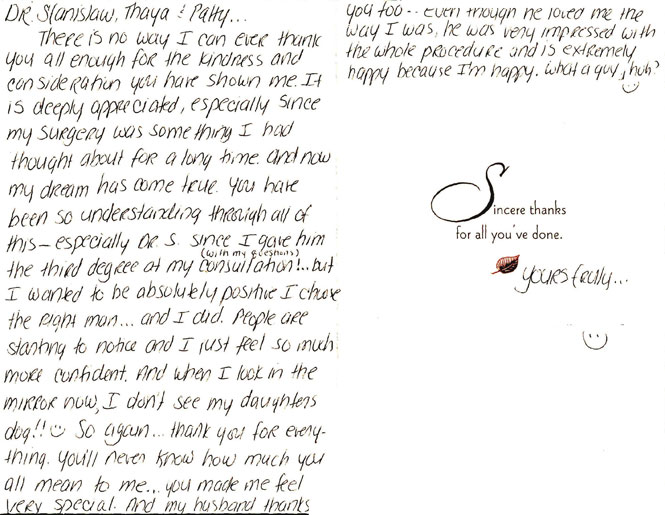 DR. Stanislaw, Thaya & Patty...
There is no way I can ever thank
you all enough for the kindness and
consideration you have shown me. It
is deeply appreciated, especially since
my surgery was something I had
thought about for a long time. And now
my dream has come true. You have
been so understanding through all of
this - especially Dr. S. since I gave him
(with my questions)
the third degree at my consultation!.. but
I wanted to be absolutely positive I chose
the right man... and I did. People are
starting to notice and I just feel so much
more confident. And when I look in the
mirror now, I don't see my daughters
dog!! ☺ So again... thank you for every-
thing. You'll never know how much you
all mean to me... you made me feel
very special. And my husband thanks
you too.. Even though he loved me the
way I was, he was very impressed with
the whole procedure and is extremely
happy because I'm happy. What a guy, huh?
☺
Sincere thanks
for all you've done.
yours truly...
☺